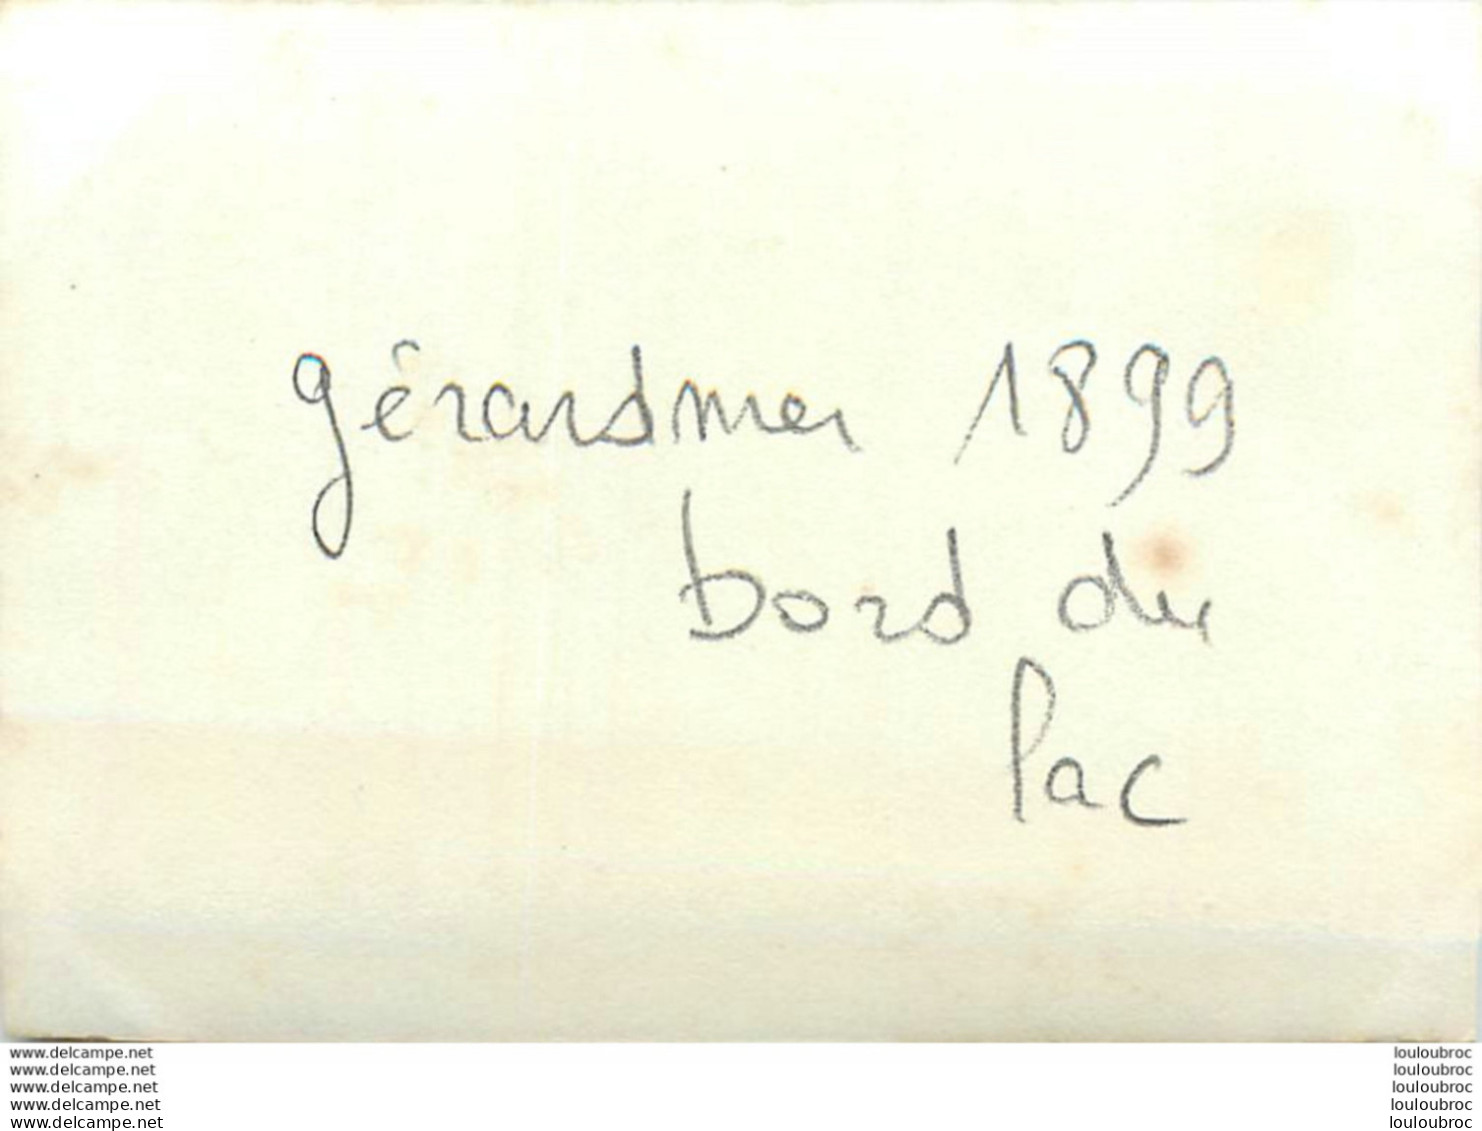 gérardmer 1899
bord du
lac
www.delcampe.net
www.delcampe.net
www.delcampe.net
www.delcampe.net
www.delcampe.net
louloubroc
louloubroc
louloubroc
louloubroc
louloubroc